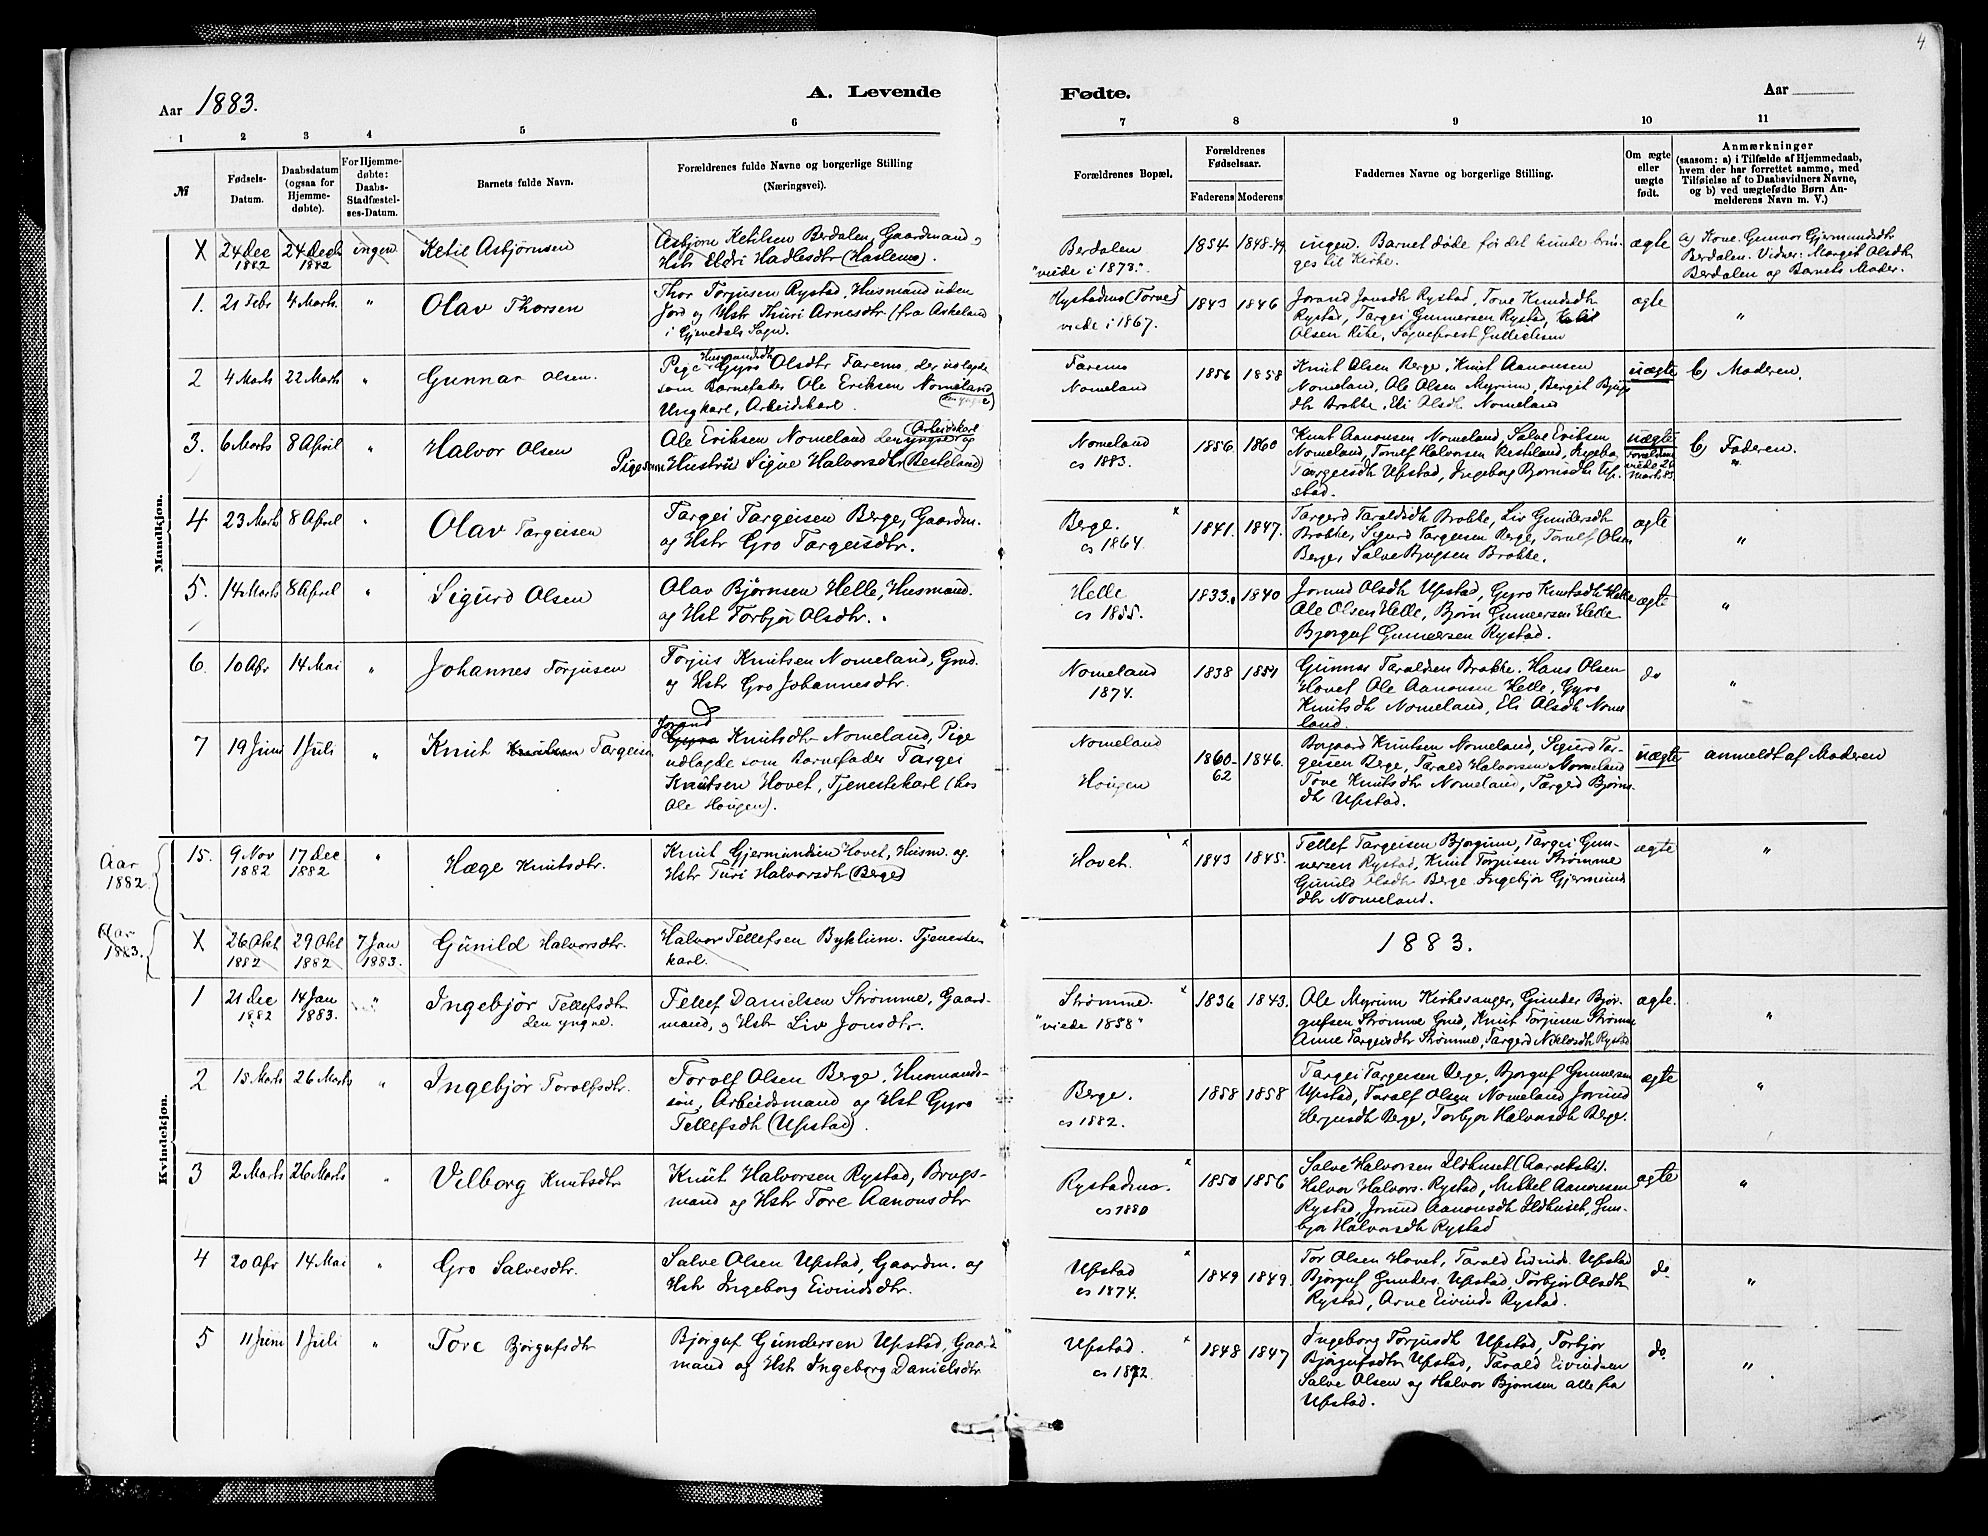 4
Aar 1883.
A. Levende
Fødte.
Aar
1 2 3 4 5 6
7 8 9 10 11
№
Fødsels-
Datum.
Daabsdatum
(ogsaa for
Hjemme-
døbte).
For Hjemme-
døbte:
Daabs-
Stadfæstel-
ses-Datum.
Barnets fulde Navn.
Forældrenes fulde Navne og borgerlige Stilling
(Næringsvei).
Forældrenes Bopæl.
Forældrenes
Fødselsaar.
Faderens Moderens
Faddernes Navne og borgerlige Stilling.
Om ægte
eller
uægte
født.
Anmærkninger
(saasom: a) i Tilfælde af Hjemmedaab,
hvem der har forrettet samme, med
Tilføielse af to Daabsvidners Navne,
og b) ved uægtefødte Børn An-
melderens Navn m. V.)
Mandkjøn.
X
24 Dec
1882
24 Dech
1882
ingen
Ketil Asbjørnsen
Asbjørn Ketilsen Berdalen, Gaardmand, og
Hst Eldri Hadlesdtr (Haslemo).
Berdalen
"viede i 1873".
1854 1848-49
ingen. Barnet døde før det kunde brin-
ges til Kirke.
ægte
a) Kone Gunvor Gjermundsdt
Berdalen. Vidner: Margit Olsdtr
Berdalen og Barnets Moder.
1. 21 Febr 4 Marts. "
Olav Thorsen
Thor Torjusen Rystad, Husmand uden
Jord og Hst Thuri Arnesdtr (fra Askeland
i Gjevedals Sogn.
Rystadmo (Torve)
viede i 1867.
1843 1846
Jorand Jonsdtr Rystad, Tove Knudsdtr
Rystad, Targei Gunnersen Rystad,
Olsen Rike, Sognefprest Gullichsen
ægte "
2 4 Marts 22 Marts "
Gunnar Olsen.
Husmandsdtr
Pige Gyro Olsdtr Faremo, der udlagde
som Barnefader Ole Eriksen Nomeland
(den yngre)
Ungkarl, Arbeidskarl.
Faremo
Nomeland
1856 1858
Knut Olsen Berge, Knut Aanonsen
Nomeland, Ole Olsen Myrum, Bergit Bjug
dtr Brokke, Eli Olsdtr Nomeland
uægte
b) Moderen.
3. 6 Marts 8 April "
Halvor Olsen
(Arbeidskarl
Ole Eriksen Nomeland den yngre og
Hustru Signe Halvorsdtr (Besteland)
Nomeland
cs 1883.
1856 1860
Knut Aanonsen Nomeland, Salve Eriksen
Nomeland, Torulf Halvorsen Besteland,
Targeisdtr Ufstad, Ingeborg Bjørnsdtr Uf-
stad.
uægte
Forældrene
viede 26
Marts 83.
b) Faderen.
"
4 23 Marts 8 April "
Olav Targeisen
Targei Targeisen Berge, Gaardm.
og Hstr Gro Targeisdtr.
Berge. x
cs 1864.
1841. 1847.
Targerd Taraldsdtr Brokke, Liv Gundersdtr
Brokke, Sigurd Targeisen Berge, Torulf Olsen
Berge, Salve Bjugsen Brokke.
ægte "
5. 14 Marts 8 April "
Sigurd Olsen
Olav Bjørnsen Helle, Husmand.
og Hst Torbjør Olsdtr.
Helle
cs 1855.
1833. 1840
Jorund Olsdtr Ufstad, Gyro Knutsdtr Helle
Ole Olsen Helle, Bjørn Gunnersen Helle
Bjørguf Gunnersen Rystad.
ægte "
6. 10 Apr 14 Mai "
Johannes Torjusen
Torjus Knutsen Nomeland, Grd.
og Hstr Gro Johannesdtr.
Nomeland
1874.
1838 1851
Gunnar Taraldsen Brokke. Hans Olsen
Hovet Ole Aanonsen Helle, Gyro
Knutsdtr Nomeland, Eli Olsdtr Nome
land.
do "
7 19 Juni 1 Juli "
Knut Knutsen Targeisen
Jorand
Gyro Knutsdtr Nomeland, Pige
udlagde som Barnefader Targei
Knutsen Hovet, Tjenestekarl (hos
Ole Hougen).
Nomeland
Hougen
1860-
62
1846.
Borgaard Knutsen Nomeland, Sigurd Tar-
geisen Berge, Tarald Halvorsen Nomeland
Tove Knutsdtr Nomeland, Targerd Bjørns
dtr Ufstad.
uægte
anmeldt af Moderen
Kvindekjøn.
Aar
1882.
15.
9 Nov
1882
17 Dec
1882
"
Hæge Knutsdtr.
Knut Gjermundsen Hovet, Husm. og.
Hstr Turi Halvorsdtr (Berge)
Hovet. x
1843 1845.
Tellef Targeisen Bjørgum, Targei Gun-
nersen Rystad, Knut Torjusen Strømme
Gunild Olsdtr Berge Ingebjør Gjermund
dtr Nomeland.
ægte "
Aar
1883.
X
26 Okt
1882
29 Okt
1882
7 Jan
1883.
Gunild Halvorsdtr.
Halvor Tellefsen Byklum. Tjeneste
karl.
1883.
1
21 Dec
1882
14 Jan
1883.
"
Ingebjør Tellefsdtr
den yngre.
Tellef Danielsen Strømme, Gaard-
mand, og Hstr Liv Jonsdtr.
Strømme. x
"viede 1858"
1836 1843.
Ole Myrum Kirkesanger, Gunder Bjør-
gufsen Strømme Grd, Knut Torjusen Strømme
Anne Targeisdtr Strømme, Targerd Niklosdtr Rystad
ægte. "
2 15 Marts 26 Marts "
Ingebjør Torolfsdtr.
Torolf Olsen Berge, Husmands-
søn, Arbeidsmand og Hst Gyro
Tellefsdtr (Ufstad).
Berge.
cs 1882.
1858 1858
Targei Targeisen Berge, Bjørguf Gunnersen
Ufstad, Torolf Olsen Nomeland Jorund
Herjusdtr Berge, Torbjør Halvorsdtr Berge.
ægte "
3 2 Marts 26 Marts "
Vilborg Knutsdtr
Knut Halvorsen Rystad, Brugs-
mand og Hstr Tore Aanonsdtr
Rystadmo. x
cs 1880
1850 1856
Salve Halvorsen Ildhuset (Aaraksbø).
Halvor Halvors. Rystad, Mikkel Aanonsen
Rystad, Jorund Aanonsdtr Ildhuset, Gun-
bjør Halvorsdtr Rystad
ægte "
4 20 Apr 14 Mai "
Gro Salvesdtr.
Salve Olsen Ufstad, Gaardm. og
Hstr Ingeborg Eivindsdtr.
Ufstad x
cs 1874.
1849 1849.
Tor Olsen Hovet, Tarald Eivinds. Ufstad
Bjørguf Gunders. Ufstad, Torbjør Olsdtr
Rystad, Arne Eivinds Rystad.
do "
5 11 Juni 1 Juli "
Tore Bjørgufsdtr
Bjørguf Gundersen Ufstad, Gaard
mand og Hst Ingeborg Danielsdtr
Ufstad. x
cs 1872.
1848 1847
Ingeborg Torjusdtr Ufstad, Torbjør
Bjørgufsdtr Ufstad, Tarald Eivindsen
Salve Olsen og Halvor Bjørnsen alle fra
Ufstad.
do "